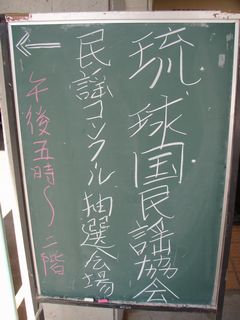 琉球国民謡協会
民謡コンクル抽選会場
午後五時〜二階
←